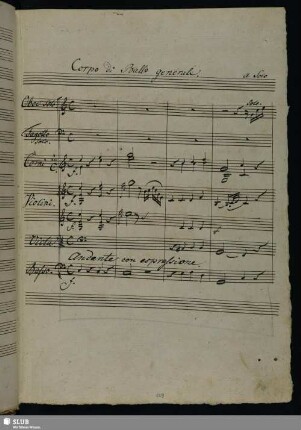 Corpo di Ballo generale.
a Solo
Oboe Solo
Solo
Fagotto Solo
Corni
Violini
Viola
Andante con espressione.
Basso
SLUB